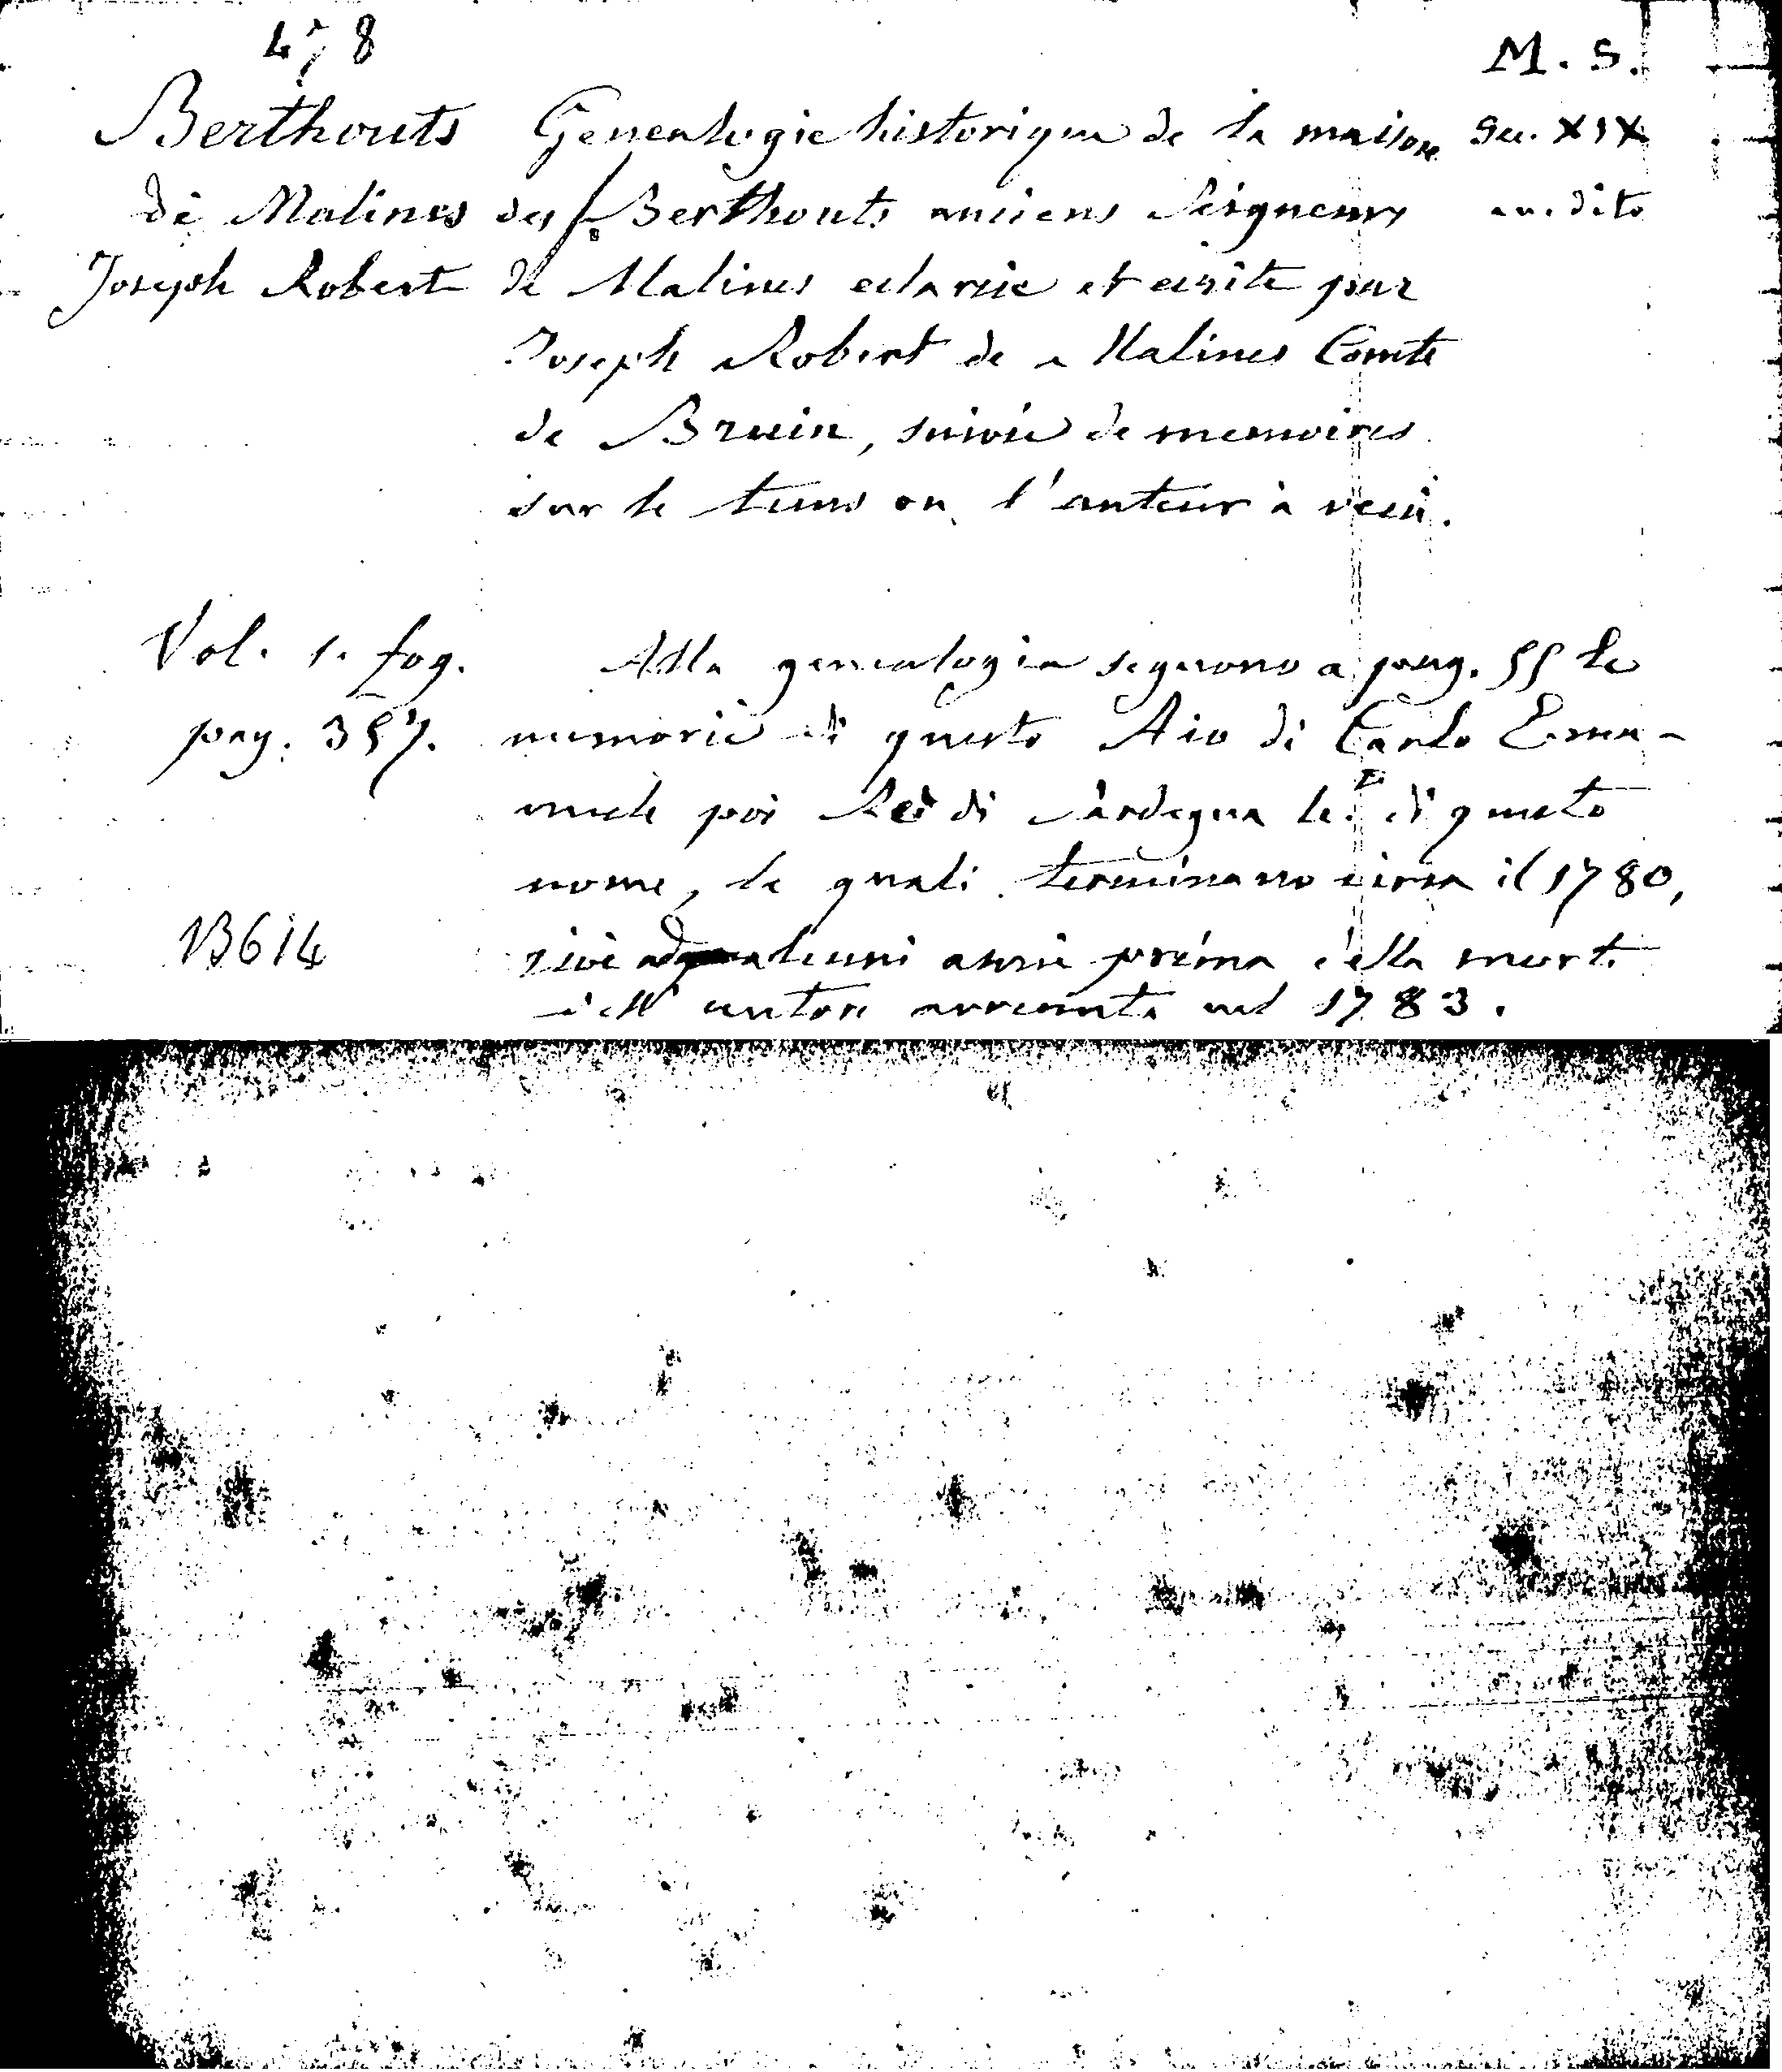 478
M. S.
Berthouts Genealogie historique de la maison Sec. XIX
di Malines des Berthouts anciens Seigneurs inedito
Joseph Robert de Malines eclarcie et ecrite par
Joseph Robert de Malines Comte
de Bruin, suivie de memoires
sur le tems ou l'auteur à vecu.
Vol. 1. fog. Alla genealogia seguono a pag. 55 le
pag. 357. memorie di questo Aio di Carlo Ema-
nuele poi Re di Sardegna IV di questo
nome, le quali terminano circa il 1780,
13614 cioè alcuni anni prima della morte
dell' autore avvenuta nel 1783.